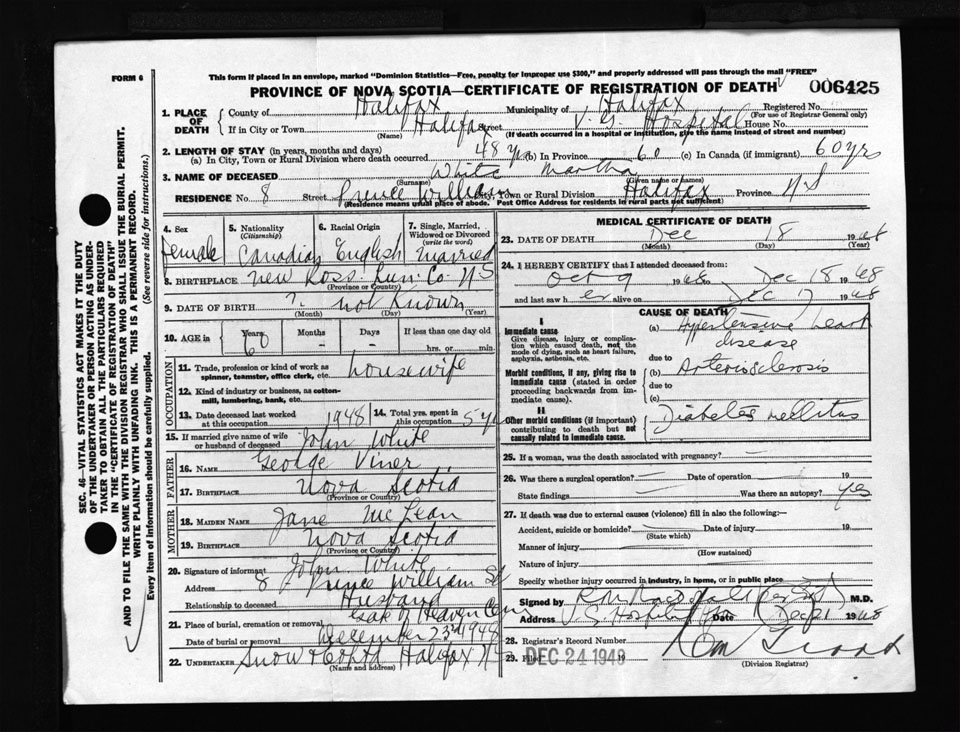 FORM 6
This form if placed in an envelope, marked "Dominion Statistics—Free, penalty for improper use $300," and properly addressed will pass through the mail "FREE"
PROVINCE OF NOVA SCOTIA—CERTIFICATE OF REGISTRATION OF DEATH 006425
1. PLACE OF DEATH County of Halifax Municipality of Halifax Registered No.
(For use of Registrar General only)
If in City or Town Halifax Street V. G. Hospital House No.
(Name) (If death occurred in a hospital or institution, give the name instead of street and number)
2. LENGTH OF STAY (in years, months and days)
(a) In City, Town or Rural Division where death occurred 48 yrs (b) In Province 60 (c) In Canada (if immigrant) 60 yrs
3. NAME OF DECEASED White Martha
(Surname) (Given name or names)
RESIDENCE No. 8 Street Prince William City, Town or Rural Division Halifax Province N S
(Residence means usual place of abode. Post Office Address for residents in rural parts not sufficient)
4. Sex 5. Nationality (Citizenship) 6. Racial Origin 7. Single, Married, Widowed or Divorced (write the word)
Female Canadian English Married
8. BIRTHPLACE New Ross Lun. Co. N S
(Province or Country)
9. DATE OF BIRTH ? not Known
(Month) (Day) (Year)
10. AGE in Years Months Days If less than one day old
60 - - hrs. or min.
OCCUPATION
11. Trade, profession or kind of work as spinner, teamster, office clerk, etc. housewife
12. Kind of industry or business, as cotton-mill, lumbering, bank, etc.
13. Date deceased last worked at this occupation 1948 14. Total yrs. spent in this occupation 5 yrs
15. If married give name of wife or husband of deceased John White
FATHER
16. NAME George Viner
17. BIRTHPLACE Nova Scotia
(Province or Country)
MOTHER
18. MAIDEN NAME Jane McLean
19. BIRTHPLACE Nova Scotia
(Province or Country)
20. Signature of informant John White
Address 8 Prince William St
Relationship to deceased Husband
21. Place of burial, cremation or removal Gate of Heaven Cem
Date of burial or removal December 23rd 1948
22. UNDERTAKER Snow & Co Ltd Halifax N S
MEDICAL CERTIFICATE OF DEATH
23. DATE OF DEATH Dec 18 1948
(Month) (Day) (Year)
24. I HEREBY CERTIFY that I attended deceased from:
Oct 9 1948 Dec 18 1948
and last saw her alive on Dec 17 1948
CAUSE OF DEATH
I
Immediate cause
Give disease, injury or complication which caused death, not the mode of dying, such as heart failure, asphyxia, asthenia, etc.
(a) Hypertensive heart disease
due to
Morbid conditions, if any, giving rise to immediate cause (stated in order proceeding backwards from immediate cause).
(b) Arteriosclerosis
due to
(c)
II
Other morbid conditions (if important) contributing to death but not causally related to immediate cause.
Diabetes mellitus
25. If a woman, was the death associated with pregnancy?
26. Was there a surgical operation? Date of operation 19
State findings Was there an autopsy? yes
27. If death was due to external causes (violence) fill in also the following:—
Accident, suicide or homicide? Date of injury 19
(State which)
Manner of injury
(How sustained)
Nature of injury
Specify whether injury occurred in industry, in home, or in public place
Signed by R M MacDonald M.D.
V. G. Hospital Date Dec 21 1948
28. Registrar's Record Number
29. Filed DEC 24 1948 19
(Division Registrar)
SEC. 46—VITAL STATISTICS ACT MAKES IT THE DUTY
OF THE UNDERTAKER OR PERSON ACTING AS UNDER-
TAKER TO OBTAIN ALL THE PARTICULARS REQUIRED
IN THE "CERTIFICATE OF REGISTRATION OF DEATH"
AND TO FILE THE SAME WITH THE DIVISION REGISTRAR WHO SHALL ISSUE THE BURIAL PERMIT.
WRITE PLAINLY WITH UNFADING INK. THIS IS A PERMANENT RECORD.
Every item of information should be carefully supplied. (See reverse side for instructions.)